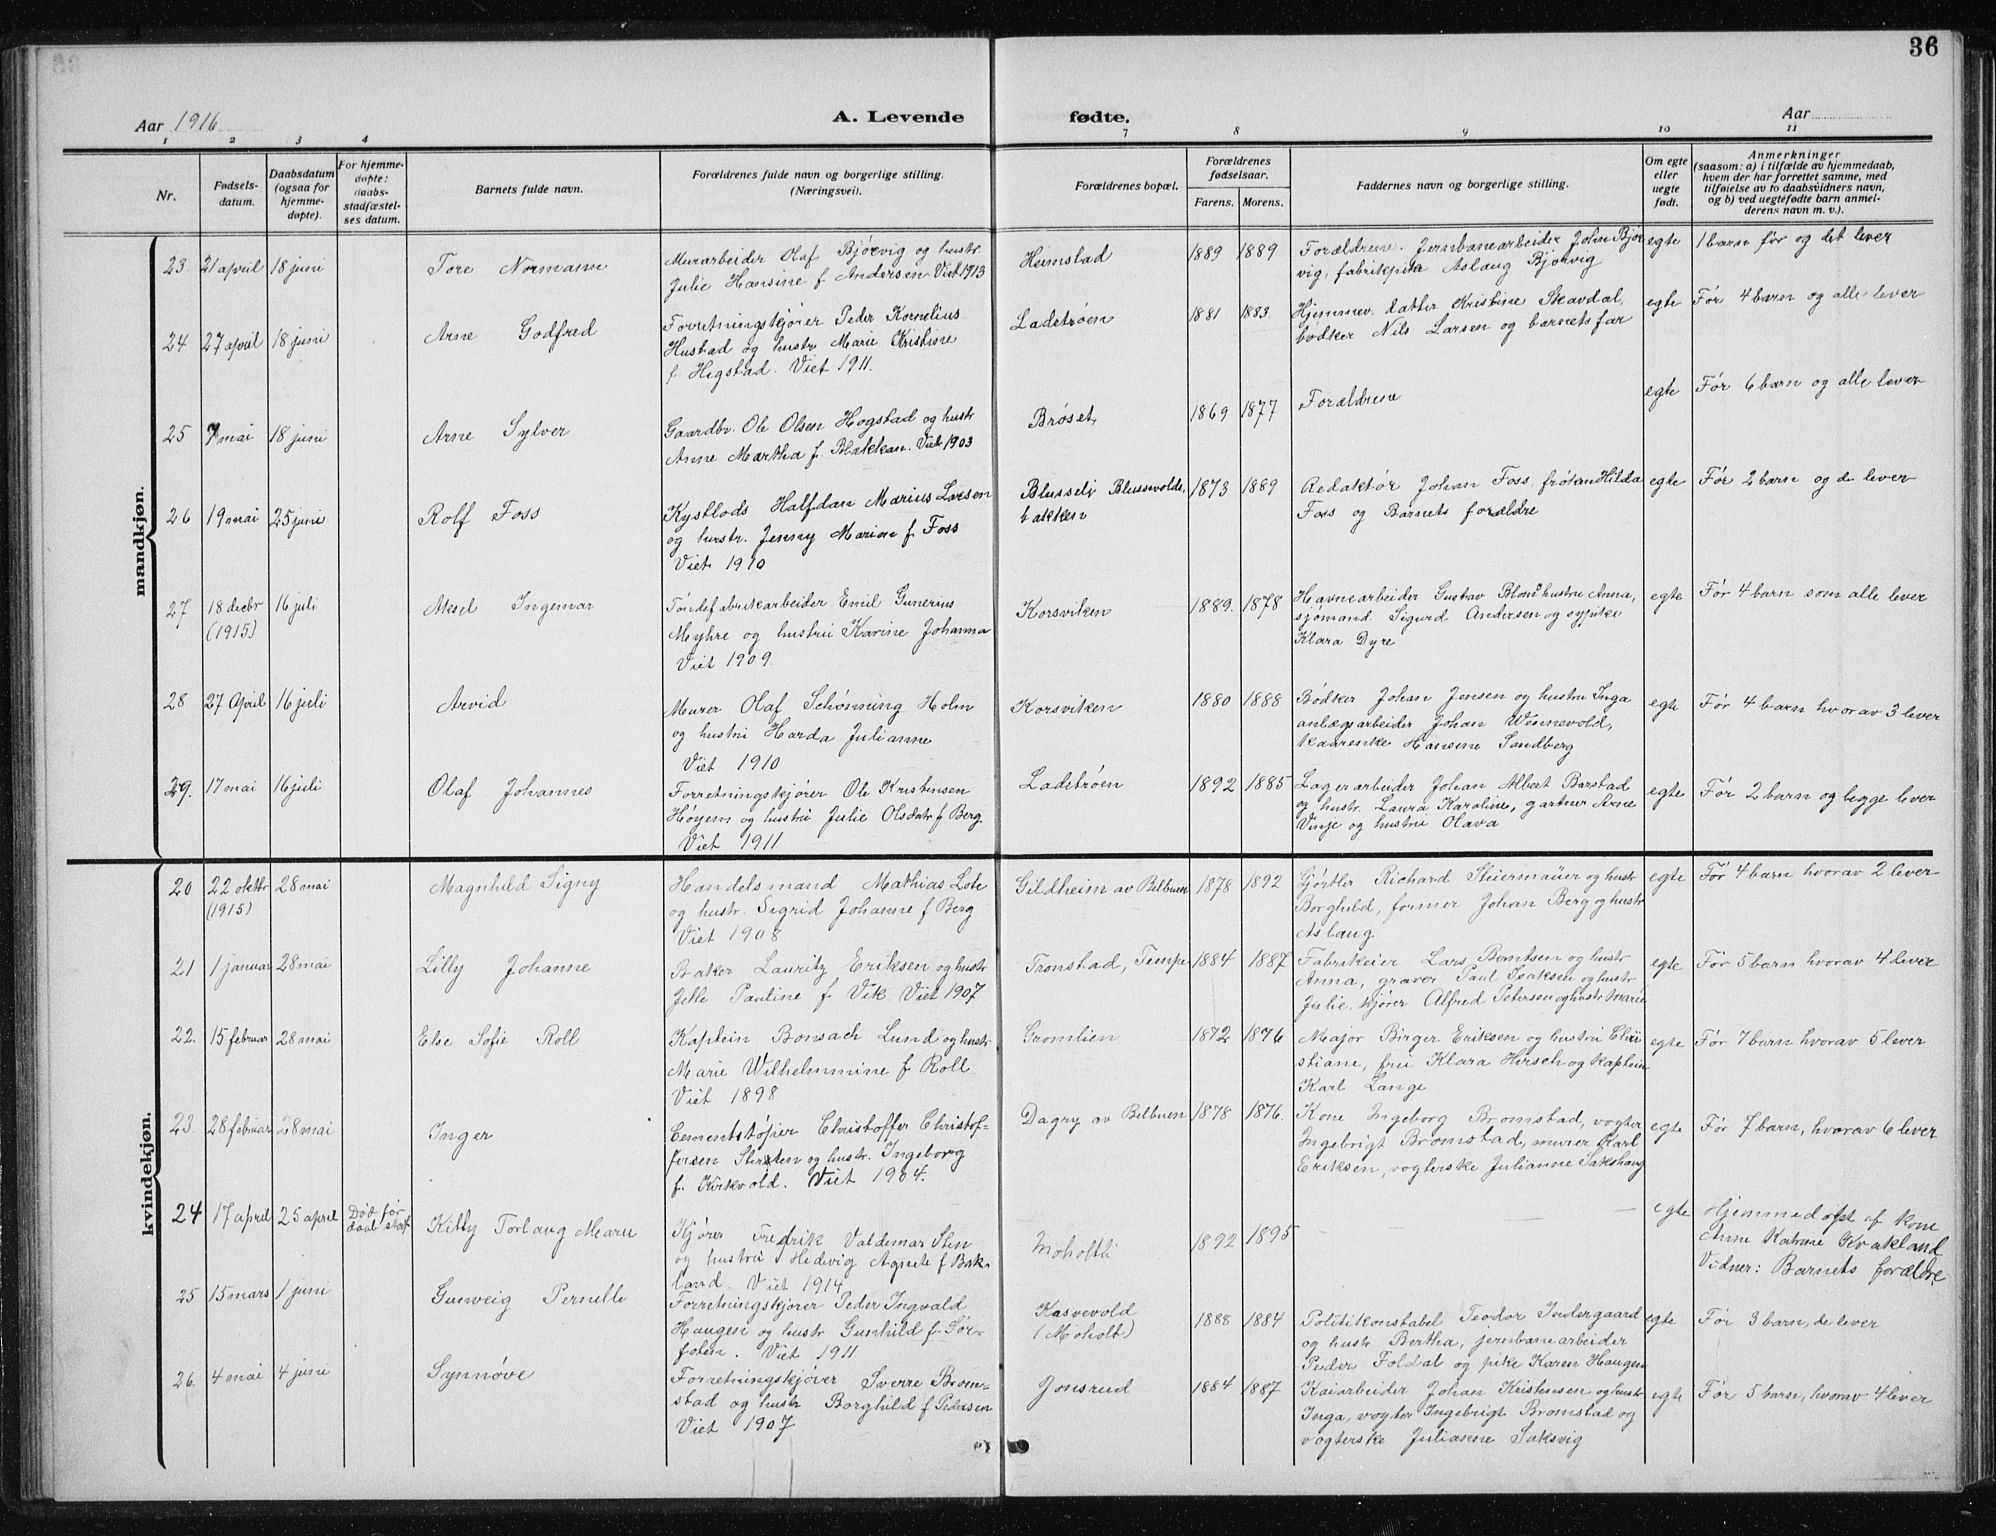 36
Aar 1916
A. Levende fødte.
Aar
1 2 3 4 7 8 9 10 11
Nr.
Fødsels-
datum.
Daabsdatum
(ogsaa for
hjemme-
døpte).
For hjemme-
døpte:
daabs-
stadfæstel-
ses datum.
Barnets fulde navn.
Forældrenes fulde navn og borgerlige stilling.
(Næringsvei).
Forældrenes bopæl.
Forældrenes
fødselsaar.
Farens. Morens.
Faddernes navn og borgerlige stilling.
Om egte
eller
uegte
født.
Anmerkninger
(saasom: a) i tilfælde av hjemmedaab,
hvem der har forrettet samme, med
tilføielse av to daabsvidners navn,
og b) ved uegtefødte barn anmel-
derens navn m. v.).
mandkjøn.
23 21 april 18 juni Tore Normann
Murarbeider Olaf Bjørvig og hustr
Julie Hansine f. Andersen Viet 1913
Heimstad 1889 1889
Forældrene. Jernbanearbeider Johan Bjør
vig, fabrikpike Aslaug Bjørvig
egte 1 barn før og det lever
24 27 april 18 juni Arne Godfred
Forretningskjører Peder Kornelius
Hustad og hustr Marie Kristine
f. Hegstad. Viet 1911.
Ladetrøen 1881 1883.
Hjemmev. datter Kristine Skavdal,
bødker Nils Larsen og barnets far
egte Før 4 barn og alle lever
25 7 mai 18 juni Arne Sylver
Gaardbr. Ole Olsen Hogstad og hustr
Anne Martha f. Blækkan. Viet 1903
Brøset, 1869 1877 Forældrene
egte Før 6 barn og alle lever
26 19 mai 25 juni Rolf Foss
Kystlods Halfdan Marius Larsen
og hustr. Jenny Marion f. Foss
Viet 1910
Blusselv Blussevolds
bakken
1873 1889
Redaktør Johan Foss, frøken Hilda
Foss og Barnets forældre
egte Før 2 barn og de lever
27 18 decbr 16 juli Aksel Ingemar
(1915)
Tøndefabrikarbeider Emil Gunerius
Myhre og hustru Karine Johanna
Viet 1909.
Korsviken 1889. 1878
Havnearbeider Gustav Blone hustru Anna,
sjømand Sigurd Andersen og sypike
Klara Dyre
egte Før 4 barn som alle lever
28 27 April 16 juli Arvid
Murer Olaf Schønning Holm
og hustru Harda Julianne
Viet 1910
Korsviken 1880 1888
Bødker Johan Jensen og hustru Inga
anlægsarbeider Johan Wennevold,
Hansine Sandberg
egte Før 4 barn hvorav 3 lever
29. 17 mai 16 juli Olaf Johannes
Forretningskjører Ole Kristensen
Høyem og hustru Julie Olsdatr f Berg
Viet 1911
Ladetrøen 1892 1885
Lagerarbeider Johan Albert Barstad
og hustr. Laura Karoline, gartner Arne
Vinje og hustru Olava
egte Før 2 barn og begge lever
kvindekjøn.
20 22 oktbr 28 mai Magnhild Signy
(1915)
Handelsmand Mathias Lote
og hustr. Sigrid Johanne f Berg
Viet 1908
Gildheim av Bilbuen 1878 1892
Gjørtler Richard Steiermaüer og hustr
Borghild, former Johan Berg og hustr
Aslaug
egte Før 4 barn hvorav 2 lever
21 1 januar 28 mai Lilly Johanne
Baker Lauritz Eriksen og hustr
Jelle Pauline f. Vik. Viet 1907
Tronstad, Tempe 1884 1887
Fabrikeier Lars Berntsen og hustr
Anna, graver Paul Isaksen og hustr
Julie, kjører Alfred Petersen og hustr Marie
egte Før 5 barn hvorav 4 lever
22. 15 februar 28 mai Else Sofie Roll
Kaptein Bonsach Lund og hustr
Marie Wilhelmmine f Roll
Viet 1898
Gromlien 1872 1876
Major Birger Eriksen og hustru Chri
stiane, fru Klara Hirsch og kaptein
Karl Lange
egte Før 7 barn hvorav 5 lever
23. 28 februar 28 mai Inger
Cementstøper Christoffer Christof-
fersen Stersten og hustr. Ingeborg
f. Kirkvold. Viet 1904.
Dagry av Bilbuen 1878 1876.
Kone Ingeborg Bromstad, vogter
Ingebrigt Bromstad, murer Karl
Eriksen, vogterske Julianne Sakshaug
egte Før 7 barn, hvorav 6 lever
24 17 april 25 april Død før
daab. staf Kitty Torlaug Marie
Kjører Fredrik Valdemar Sten
og hustru Hedevig Agnete f Bak-
land. Viet 1914
Moholtli 1892 1895
— — — —
egte Hjemmedøpt af kone
Anne Katrine Kvakland
Vidner: Barnets forældre
25 15 mars 1 juni Gunveig Pernille
Forretningskjører Peder Ingvald
Haugen og hustr Gunhild f. Sør-
foten. Viet 1911
Kasvevold
(Moholt)
1888 1884
Politikonstabel Teodor Indergaard
og hustr Bertha, jernbanearbeider
Peder Foldal og pike Karen Haugen
egte Før 3 barn, de lever
26. 4 mai 4 juni Synnøve
Forretningskjører Sverre Brom-
stad og hustr Borghild f Pedersen
Viet 1907
Jonsrud 1884 1887
Kaiarbeider Johan Kristensen og hustr
Inga, vogter Ingebrigt Bromstad og
vogterske Julianne Saksvig
egte Før 5 barn, hvorav 4 lever